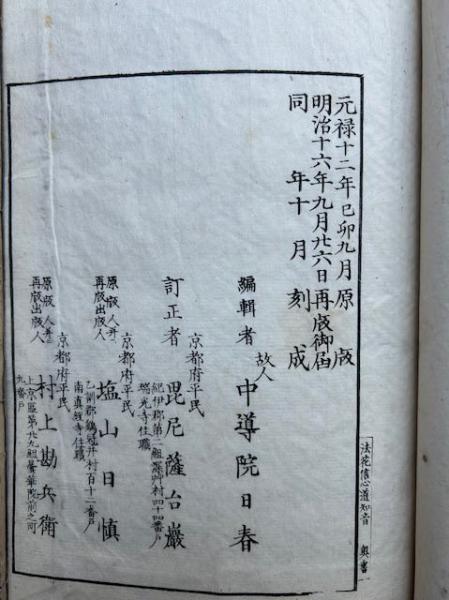 元禄十二年己卯九月原版
明治十六年九月廿六日再版御届
同年十月刻成
編輯者 故人 中導院日春
京都府平民
訂正者 毘尼薩台巖
紀伊郡第二組深艸村四十四番戸
瑞光寺住職
京都府平民
原版人并ニ
再版出版人
塩山日慎
乙訓郡鶏冠井村百十二番戸
南真経寺住職
京都府平民
原版人并ニ
再版出版人
村上勘兵衛
上京區第廿九組曇華院前之町
九番戸
法花信心道知音 奥書 一